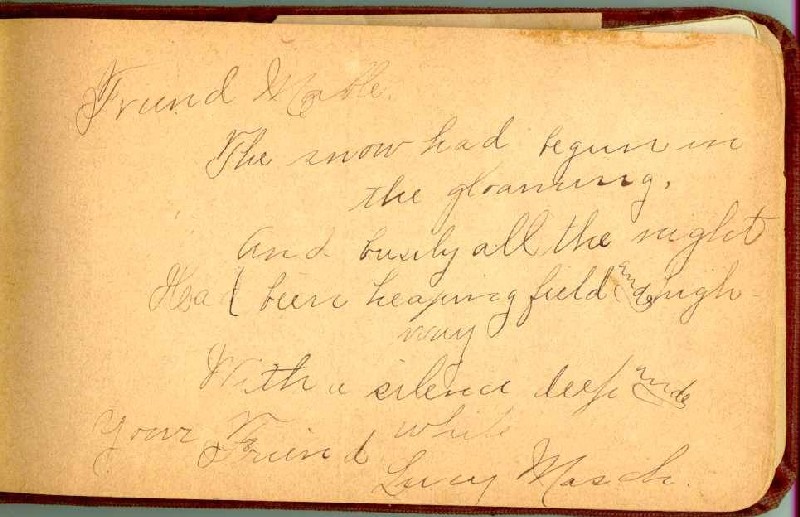 Friend Mable.
The snow had begun in
the gloaming,
And busily all the night
Had been heaping field and high-
way
With a silence deep and
white
Your Friend
Lucy Masch.